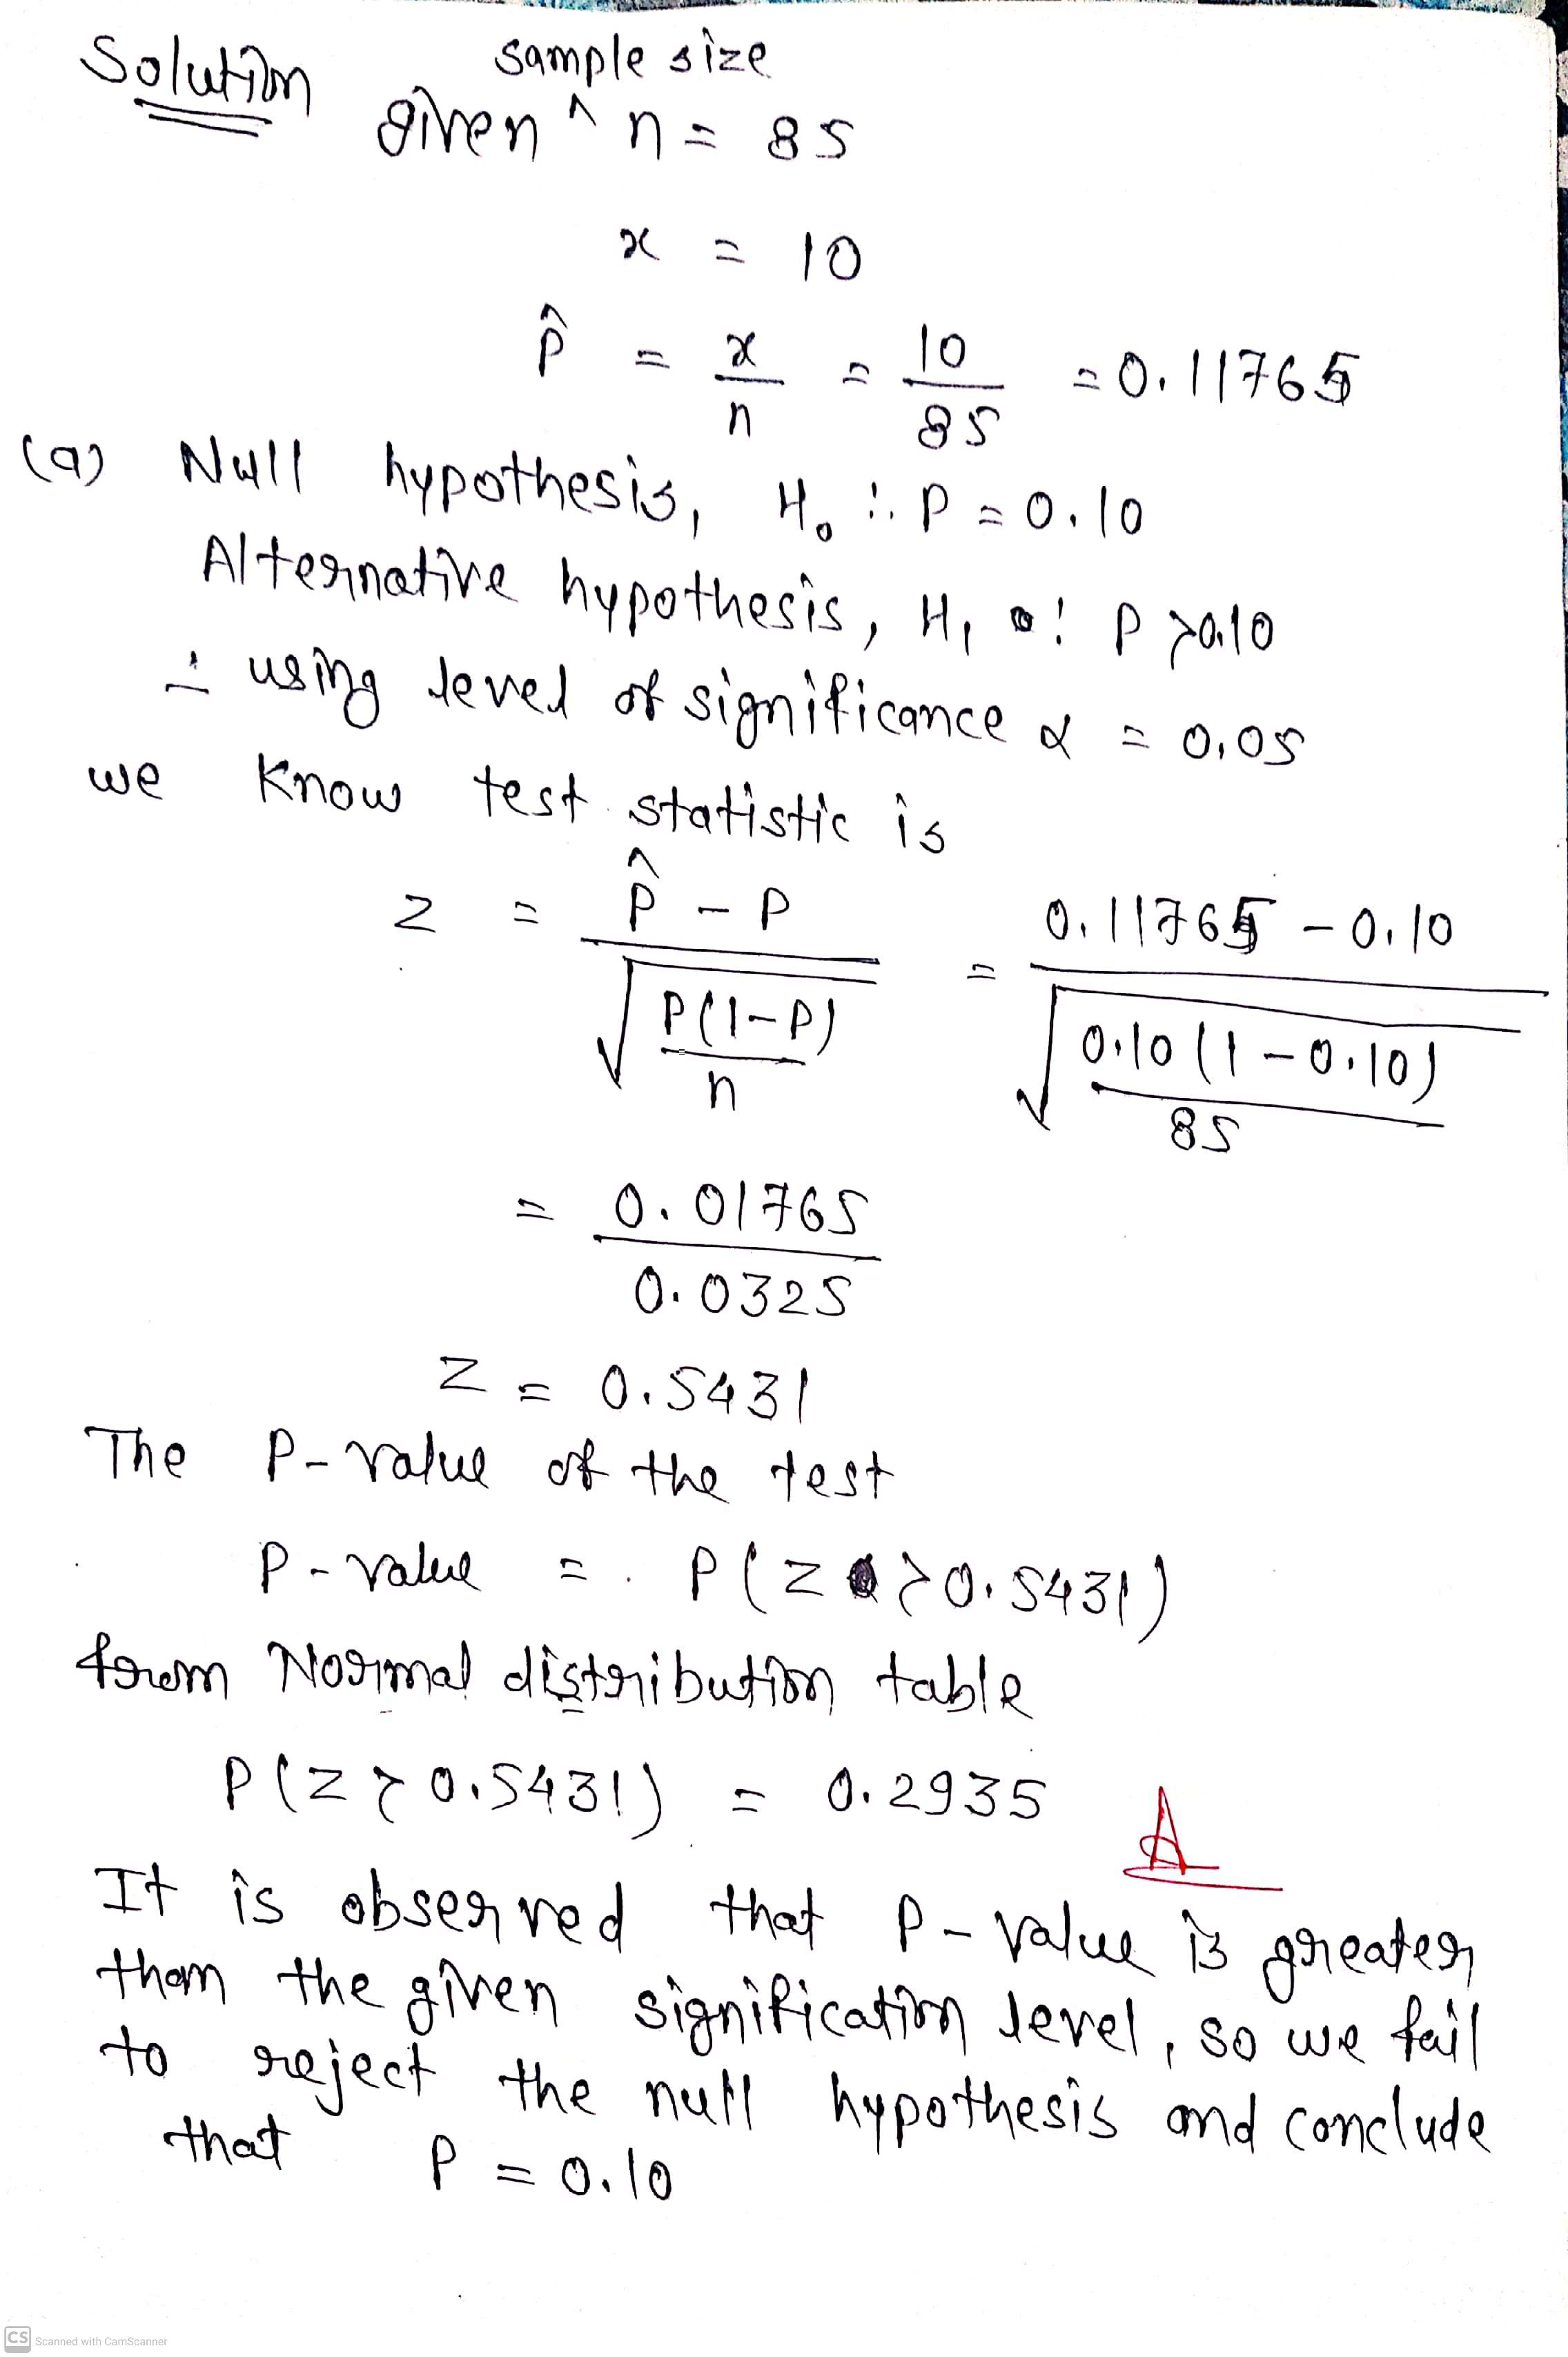 Solution
sample size
given ^ n = 85
x = 10
p̂ = x/n = 10/85 = 0.11765
(a) Null hypothesis, H₀ : P = 0.10
Alternative hypothesis, H₁ : P > 0.10
∴ using level of significance α = 0.05
we know test statistic is
z = (p̂ - P)/√(P(1-P)/n) = (0.11765 - 0.10)/√(0.10(1-0.10)/85)
= 0.01765/0.0325
z = 0.5431
The P-value of the test
P-value = P(z > 0.5431)
from Normal distribution table
P(z > 0.5431) = 0.2935
A
It is observed that P-value is greater
than the given signification level, so we fail
to reject the null hypothesis and conclude
that P = 0.10
CS Scanned with CamScanner